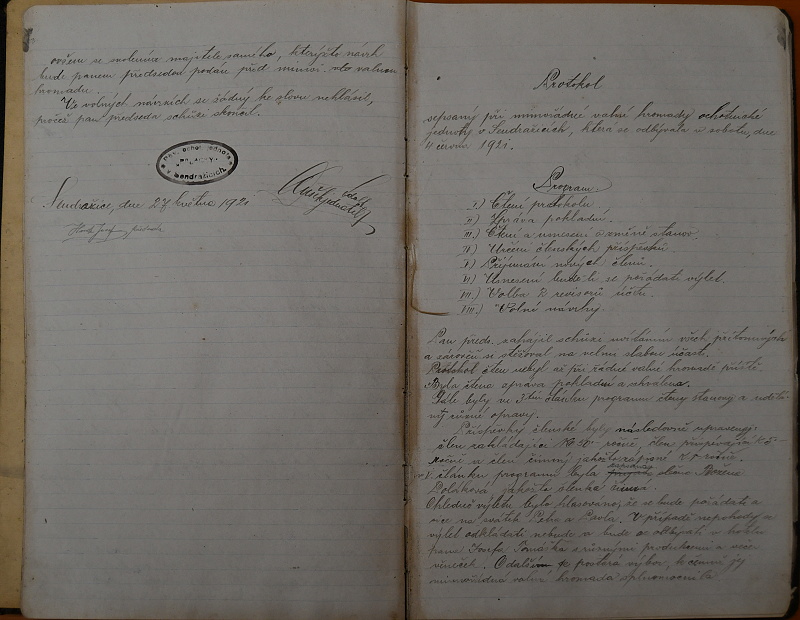 ovšem se svolením majitele samého, kterýžto návrh
bude panem předsedou podán před mimoř. valnou
hromadu.
Ve volných návrzích se žádný ke slovu nehlásil,
pročež pan předseda schůzi skončil.
Sendražicích
Sendražice, dne 27 května 1921
Protokol
sepsaný při mimořádné valné hromady ochotnické
jednoty v Sendražicích, která se odbývala v sobotu, dne
4 června 1921.
Program
I.) Čtení protokolu
II) Zpráva pokladní
III.) Čtení a usnesení o změně stanov
IV) Určení členských příspěvků
V) Přijímání nových členů
VI) Usnesení bude-li se pořádati výlet
VII.) Volba 2 revisorů účtů
VIII.) Volné návrhy.
Pan předs. zahájil schůzi uvítáním všech přítomných
a zároveň si stěžoval na velmi slabou účast.
Protokol čten nebyl až při řádné valné hromadě příště.
Byla čtena zpráva pokladní a schválena.
Dále byly ve 3tím článku programu čteny stanovy a
různé opravy.
Příspěvky členské byly následovně upraveny:
člen zakládající Kč 50 ročně, člen přispívající Kč
ročně a člen činný jakožto zápisné
V. článku programu byla slečna Božena
Poláková jakožto členka činná.
Ohledně výletu bylo hlasováno, že se bude pořádati a
sice na svátek Petra a Pavla. V případě nepohody se
výlet odkládati nebude a bude se odbývati v hotelu
pana Josefa s různými produkcemi a večer
věneček. O další se postará výbor, k čemuž jej
mimořádná valná hromada splnomocnila